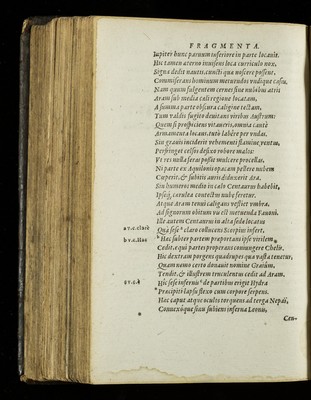 FRAGMENTA.
Iupiter hunc paruum inferiore in parte locauit.
Hic tamen aterno inuisens loca curriculo nox,
Signa dedit nautis, cuncti quæ noscere possent,
Commiserans hominum metuendos vndique casus.
Nam quum fulgentem cernes sine nubibus atris
Aram sub media cæli regione locatam,
A summa parte obscura caligine tectam,
Tum validis fugito deuitans viribus Austrum:
Quem si prospiciens vitaueris, omnia cautè
Armamenta locans, tutò labere per vndas.
Sin grauis inciderit vehementi flamine ventus,
Perfringet celsos defixo robore malos:
Vt res nulla feras possit mulcere procellas,
Ni parte ex Aquilonis opacam pellere nubem
Cœperit, & subitis auris diduxerit Ara.
Sin humeros medio in cælo Centaurus habebit,
Ipseq́; cærulea contectus nube feretur,
Atque Aram tenui caligans vestiet vmbra,
Ad signorum obitum vis est metuenda Fauoni.
Ille autem Centaurus in alta sede locatus
a v.c. clarè
Quà sese a claro collucens Scorpius infert,
b v.c. Has
b Hac subter partem præportans ipse virilem
Cedit, equi partes properans coniungere Chelis.
Hic dextram porgens quadrupes qua vasta tenetur,
Quam nemo certo donauit nomine Graiûm,
Tendit, & illustrem truculentus cedit ad Aram.
Hic sese infernis de partibus erigit Hydra
Præcipiti lapsu flexo cum corpore serpens.
Hæc caput atque oculos torquens ad terga Nepai,
Conuexóque sinu subiens inferna Leonis,
Cen-